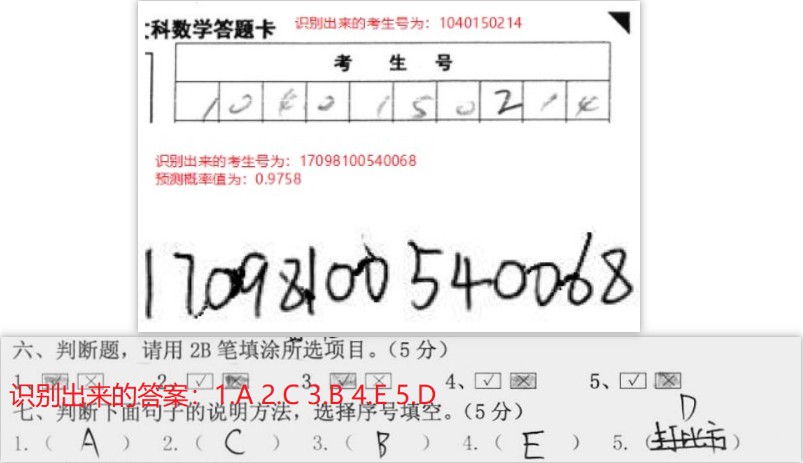 文科数学答题卡 识别出来的考生号为：1040150214
考 生 号
1 0 4 0 1 5 0 2 1 4
识别出来的考生号为：17098100540068
预测概率值为：0.9758
17098100540068
六、判断题，请用 2B 笔填涂所选项目。（5 分）
1、 2、 3、 4、 5、
识别出来的答案：1.A 2.C 3.B 4.E 5.D
七、判断下面句子的说明方法，选择序号填空。（5 分）
D
1.（ A ） 2.（ C ） 3.（ B ） 4.（ E ） 5.（打比方）